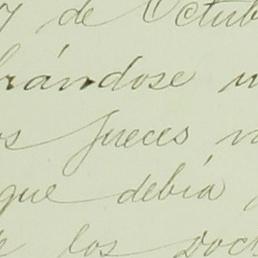 7 de Octub
brándose u
os Jueces n
que debía
e los soc